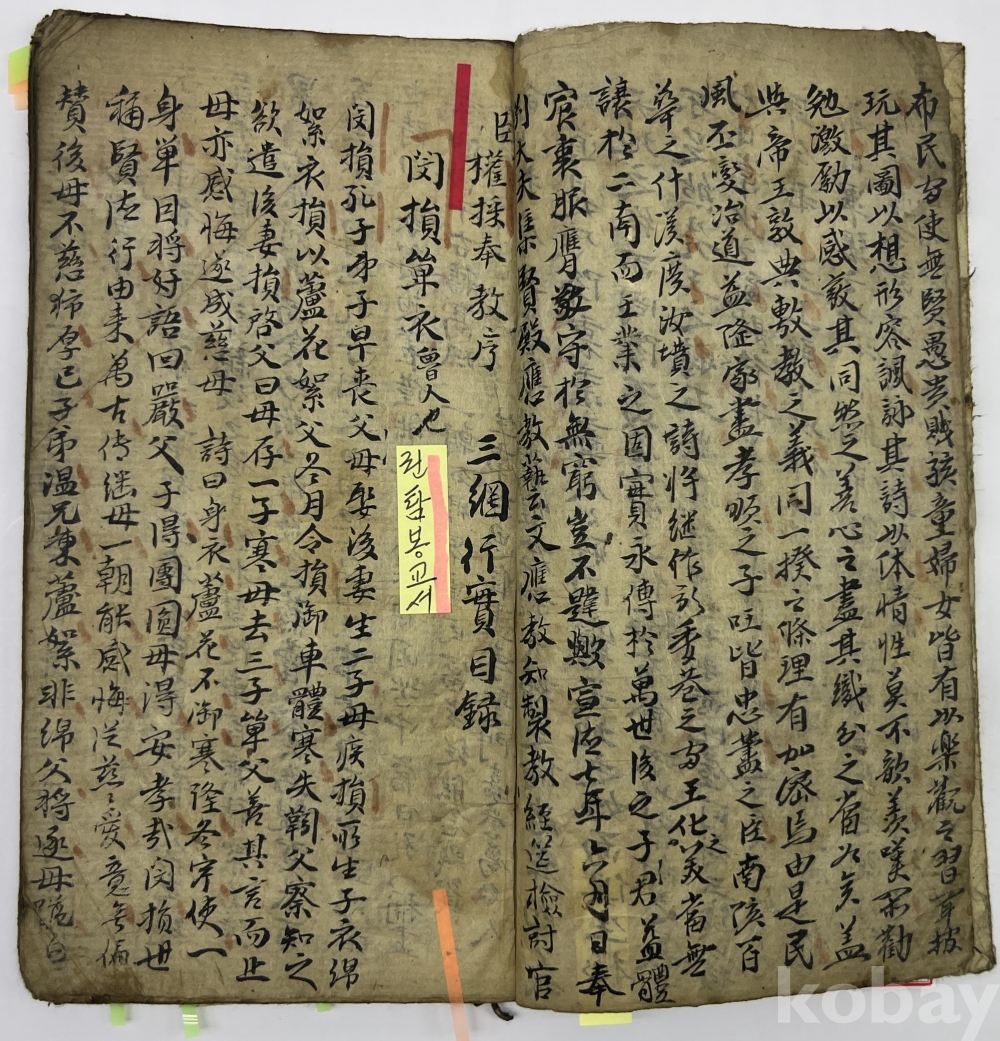 布民間使無賢愚貴賤孩童婦女皆有以樂觀而習聞披
玩其圖以想形容諷詠其詩以体情性莫不歆羨嘆嗟勸
勉激勵以感發其同然之善心而盡其職分之當爲矣盖
與帝王敦典敷敎之義同一揆而條理有加密焉由是民
風丕變治道益隆家盡孝順之子國皆忠藎之臣南陔白
華之什漢廣汝墳之詩將継作於委巷之間王化之美當無
讓於二南而王業之固實永傳於萬世後之子君益體
宸衷服膺敬守於無窮豈不韙歟宣德七年六月日奉
列大夫集賢殿應敎藝文應敎知製敎經筵檢討官
臣權採奉敎序 三綱行實目錄
閔損單衣 魯人也
閔損孔子弟子早喪父母娶後妻生二子母疾損所生子衣綿
絮衣損以蘆花絮父冬月令損御車體寒失靷父察知之
欲遣後妻損啓父曰母存一子寒母去三子單父善其言而止
母亦感悔遂成慈母 詩曰身衣蘆花不御寒隆冬寧使一
身單因將好語回嚴父子得團圓母得安孝哉閔損世
稱賢德行由來萬古傳継母一朝能感悔從玆慈愛意無偏
賛後母不慈獅厚己子弟温兄凍蘆絮非綿父將逐母跪白
권탐봉교서
kobay